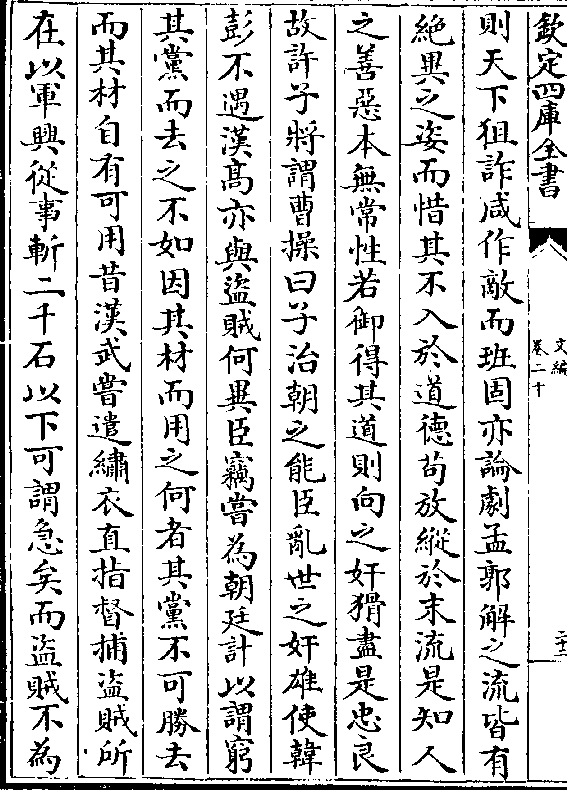 欽定四庫全書
文編
卷二十
二十三
則天下狙詐咸作敵而班固亦論劇孟郭解之流皆有
絕異之姿而惜其不入於道德苟放縱於末流是知人
之善惡本無常性若御得其道則向之奸猾盡是忠良
故許子將謂曹操曰子治朝之能臣亂世之奸雄使韓
彭不遇漢髙亦與盜賊何異臣竊嘗為朝廷計以謂窮
其黨而去之不如因其材而用之何者其黨不可勝去
而其材自有可用昔漢武嘗遣繡衣直指督捕盜賊所
在以軍興從事斬二千石以下可謂急矣而盜賊不為